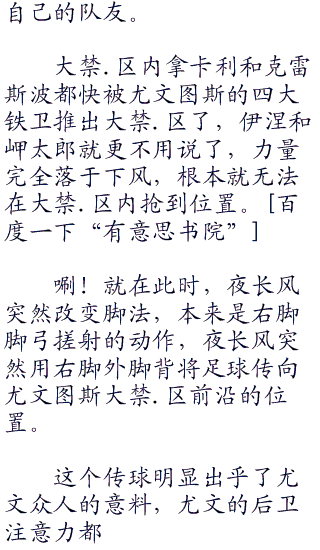 自己的队友。
大禁.区内拿卡利和克雷
斯波都快被尤文图斯的四大
铁卫推出大禁.区了，伊涅和
岬太郎就更不用说了，力量
完全落于下风，根本就无法
在大禁.区内抢到位置。[百
度一下“有意思书院”]
唰！就在此时，夜长风
突然改变脚法，本来是右脚
脚弓搓射的动作，夜长风突
然用右脚外脚背将足球传向
尤文图斯大禁.区前沿的位
置。
这个传球明显出乎了尤
文众人的意料，尤文的后卫
注意力都